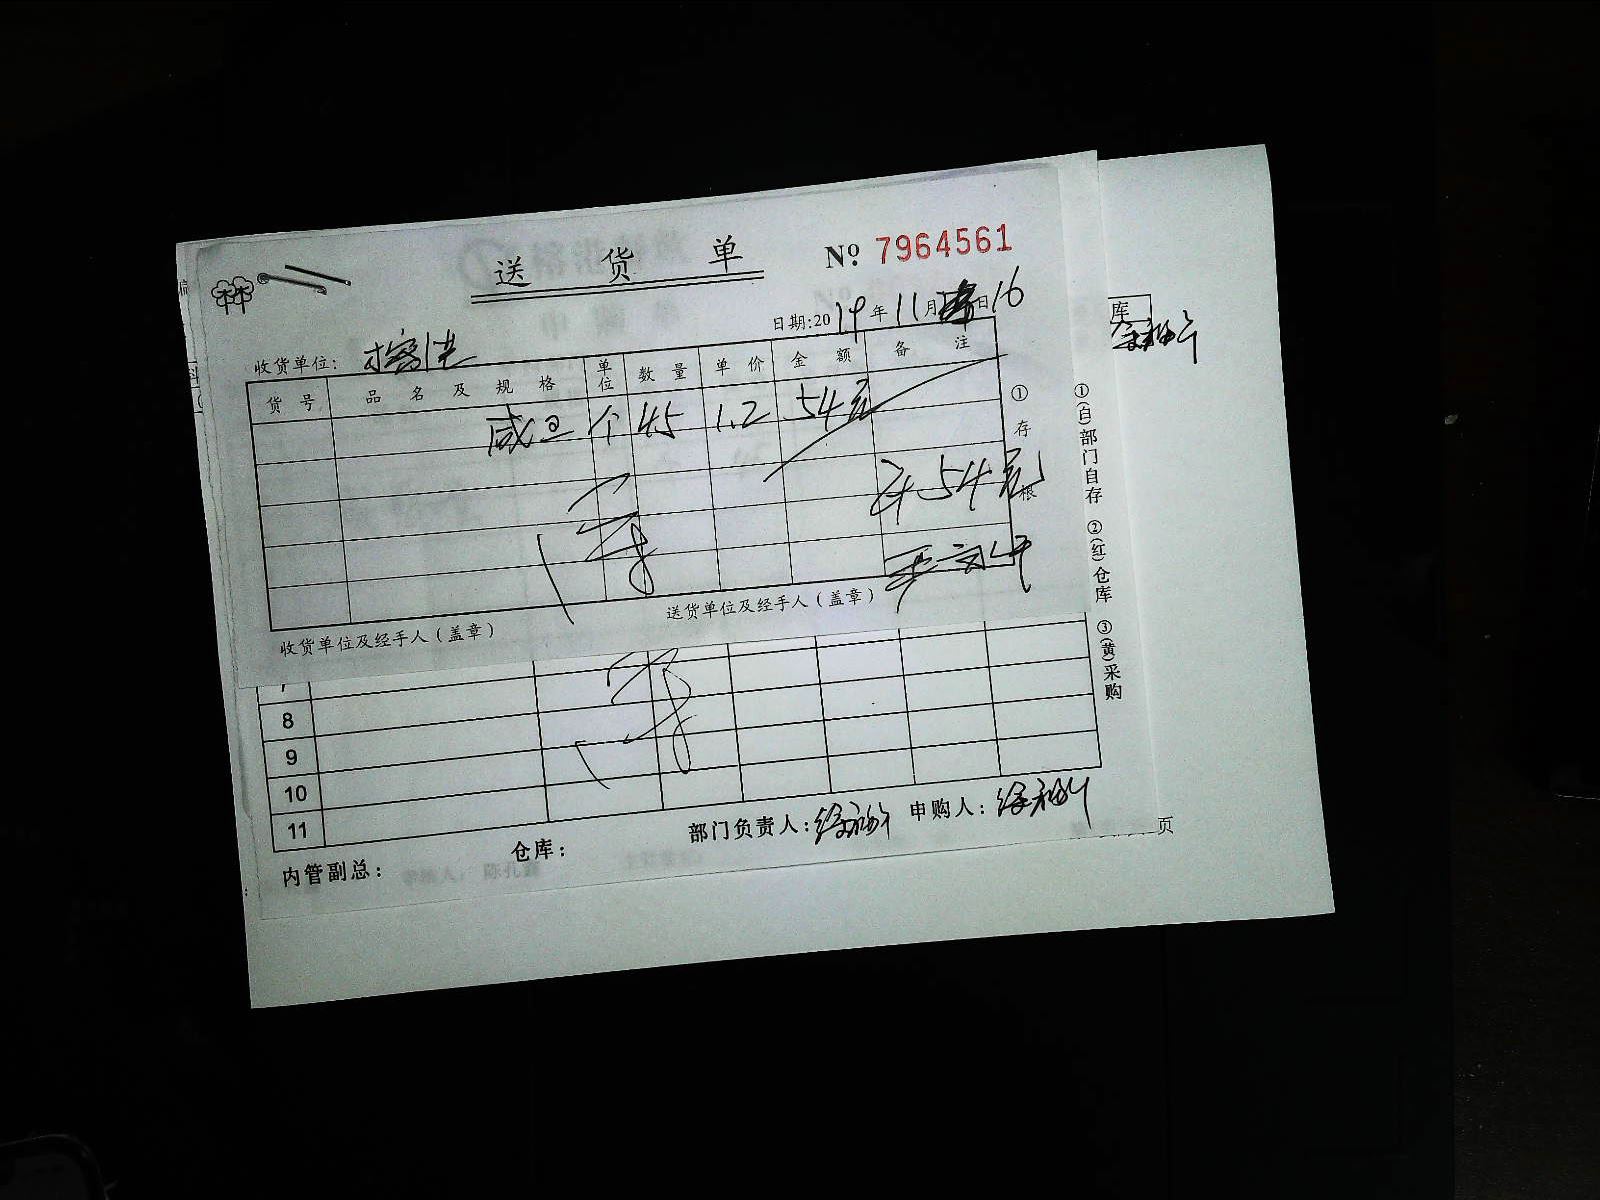 送 货 单
№ 7964561
日期:2019年11月日16
收货单位:
货号 品名及规格 单位 数量 单价 金额 备注
咸旦 个 45 1.2 54元
54元
①存根
收货单位及经手人（盖章）
送货单位及经手人（盖章）
①(白)部门自存 ②(红)仓库 ③(黄)采购
库
7
8
9
10
11
部门负责人: 申购人:
仓库:
内管副总:
页